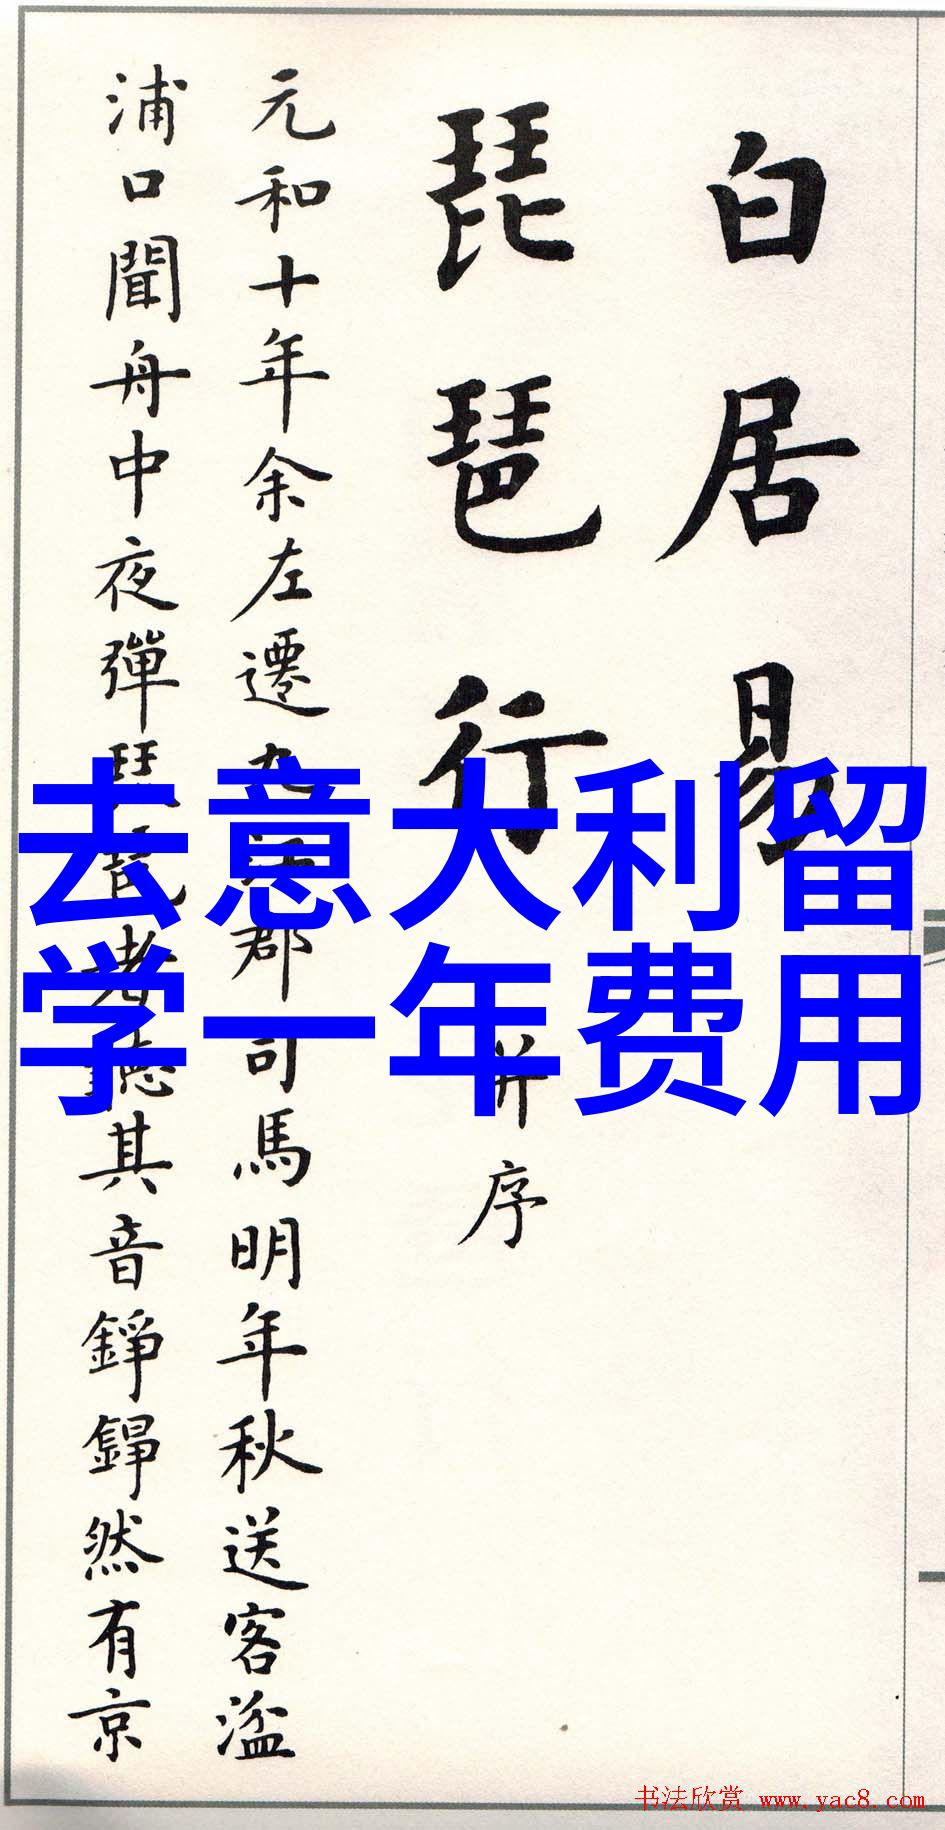 白居易
琵琶行 并序
元和十年余左遷九江郡司馬明年秋送客湓
浦口聞舟中夜彈琵琶者聽其音錚錚然有京
去意大利留
学一年费用
书法欣赏 www.yac8.com